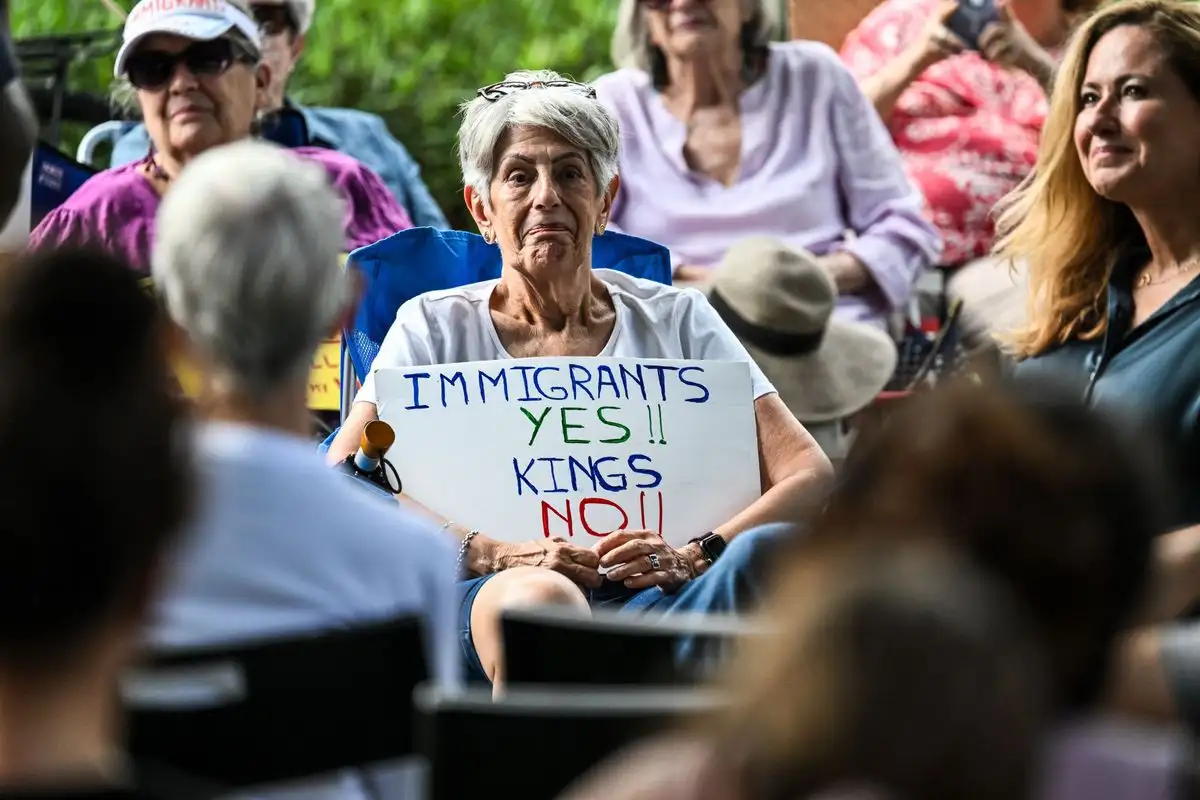 IMMIGRANTS
YES!!
KINGS
NO!!